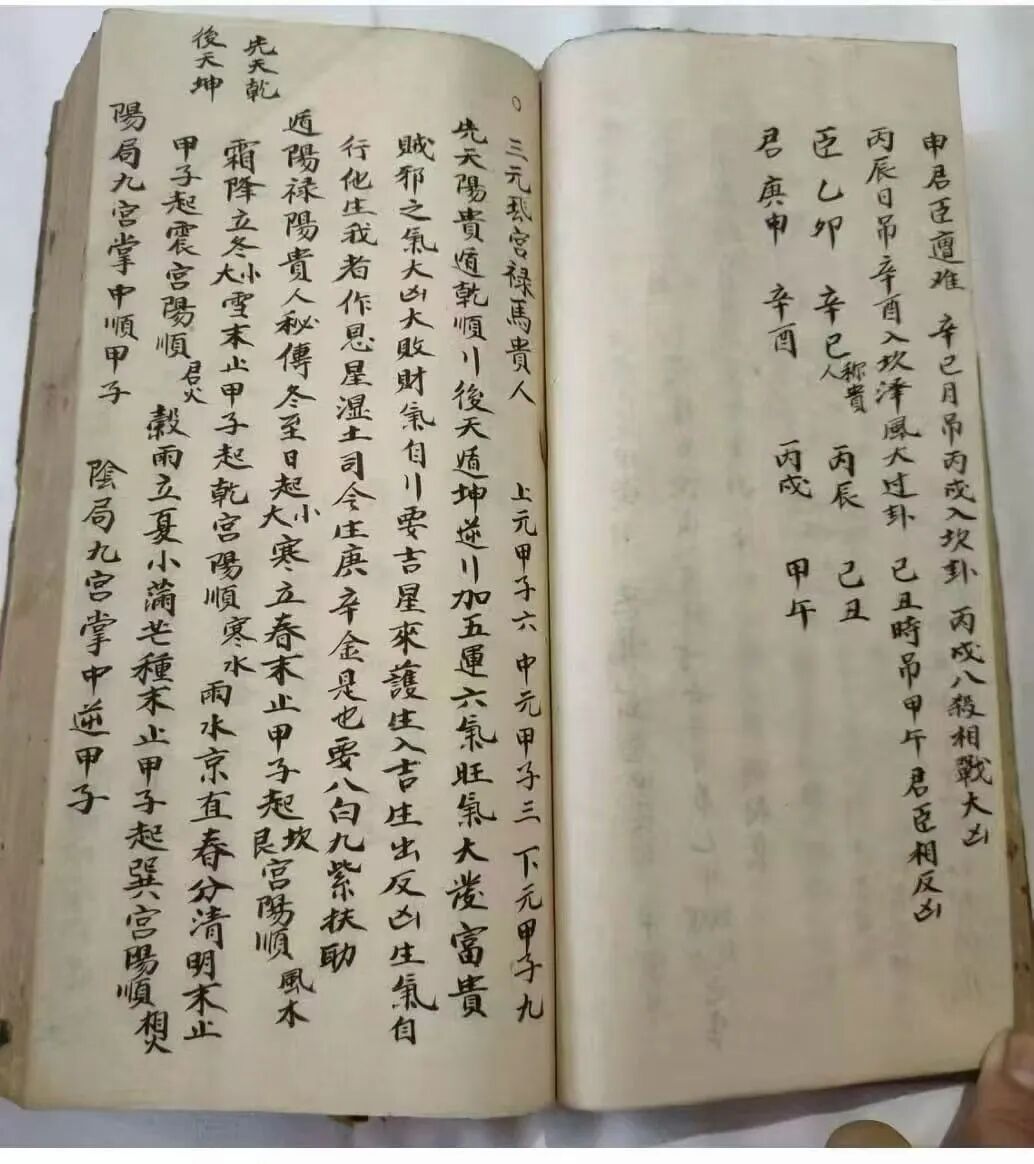 申君臣遭难 辛巳月吊丙戍入坎卦 丙戍八殺相戰大凶
丙辰日吊辛酉入坎泽風大过卦 己丑時吊甲午君臣相反凶
臣乙卯 辛巳称貴人 丙辰 己丑
君庚申 辛酉 丙戍 甲午
○三元飛宮禄馬貴人 上元甲子六 中元甲子三 下元甲子九
先天陽貴遁乾順川後天遁坤逆川加五運六氣旺氣大發富貴
賊邪之氣大凶大敗財氣自川要吉星來護生入吉生出反凶生氣自
行他生我者作恩星湿土司令庄庚辛金是也要八白九紫扶助
遁陽禄陽貴人秘傳冬至日起小大寒立春末止甲子起坎艮宮陽順風木
霜降立冬小大雪末止甲子起乾宮陽順寒水 雨水京直春分清明末止
甲子起震宮陽順君火 穀雨立夏小滿芒種末止甲子起巽宮陽順相火
陽局九宮掌中順甲子 陰局九宮掌中逆甲子
先天乾
後天坤